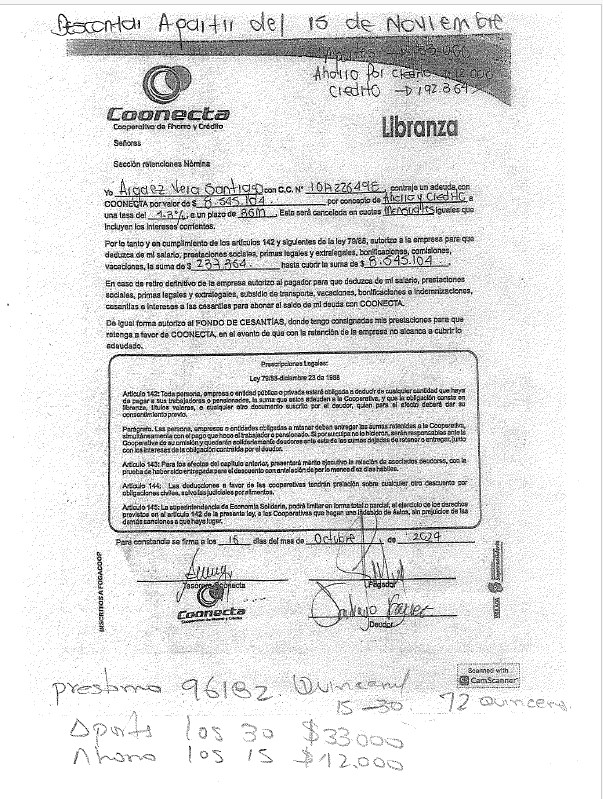 Descontar Apartir del 15 de Noviembre
Aportes
Ahorro por credito → 12.000
Credito → 192.364
Coonecta
Cooperativa de Ahorro y Crédito
Libranza
Señores
Sección retenciones Nómina
Yo Argaez Vera Santiago con C.C. N° contraje una deuda con
COONECTA por valor de $ 8.545.104 por concepto de Ahorro y Credito a
una tasa del 1.3%, a un plazo de 36M. Esta será cancelada en cuotas Mensuales iguales que
incluyen los intereses corrientes.
Por lo tanto y en cumplimiento de los artículos 142 y siguientes de la ley 79/88, autorizo a la empresa para que
deduzca de mi salario, prestaciones sociales, primas legales y extralegales, bonificaciones, comisiones,
vacaciones, la suma de $ 237.364 hasta cubrir la suma de $ 8.545.104
En caso de retiro definitivo de la empresa autorizo al pagador para que deduzca de mi salario, prestaciones
sociales, primas legales y extralegales, subsidio de transporte, vacaciones, bonificaciones e indemnizaciones,
cesantías e intereses a las cesantías para abonar al saldo de mi deuda con COONECTA.
De igual forma autorizo al FONDO DE CESANTÍAS, donde tengo consignadas mis prestaciones para que
retenga a favor de COONECTA, en el evento de que con la retención de la empresa no alcance a cubrir lo
adeudado.
Prescripciones Legales:
Ley 79/88-diciembre 23 de 1988
Artículo 142: Toda persona, empresa o entidad pública o privada estará obligada a deducir de cualquier cantidad que haya
de pagar a sus trabajadores o pensionados, la suma que estos adeuden a la Cooperativa, y que la obligación conste en
libranza, títulos valores, o cualquier otro documento suscrito por el deudor, quien para el efecto deberá dar su
consentimiento previo.
Parágrafo. Las personas, empresas o entidades obligadas a retener deben entregar las sumas retenidas a la Cooperativa,
simultáneamente con el pago que hace el trabajador o pensionado. Si por su culpa no lo hicieren, serán responsables ante la
Cooperativa de su omisión y quedarán solidariamente deudores ante esta de las sumas dejadas de retener o entregar, junto
con los intereses de la obligación contraída por el deudor.
Artículo 143: Para los efectos del capítulo anterior, prestará mérito ejecutivo la relación de asociados deudores, con la
prueba de haber sido entregada para el descuento con antelación de por lo menos diez días hábiles.
Artículo 144: Las deducciones a favor de las cooperativas tendrán prelación sobre cualquier otro descuento por
obligaciones civiles, salvo las judiciales por alimentos.
Artículo 145: La superintendencia de Economía Solidaria, podrá limitar en forma total o parcial, el ejercicio de los derechos
previstos en el artículo 142 de la presente ley, a las Cooperativas que hagan uso indebido de éstos, sin perjuicios de las
demás sanciones a que haya lugar.
Para constancia se firma a los 16 días del mes de Octubre de 2024
Tesorero Coonecta
Pagador
Coonecta
Cooperativa de Ahorro y Crédito
Deudor
INSCRITOS A FOGACOOP
VIGILADA Supersolidaria
Scanned with
CamScanner
prestamo 96182. Quincenal
15-30. 72 quincenas
Aporte los 30 $33.000
Ahorro los 15 $12.000